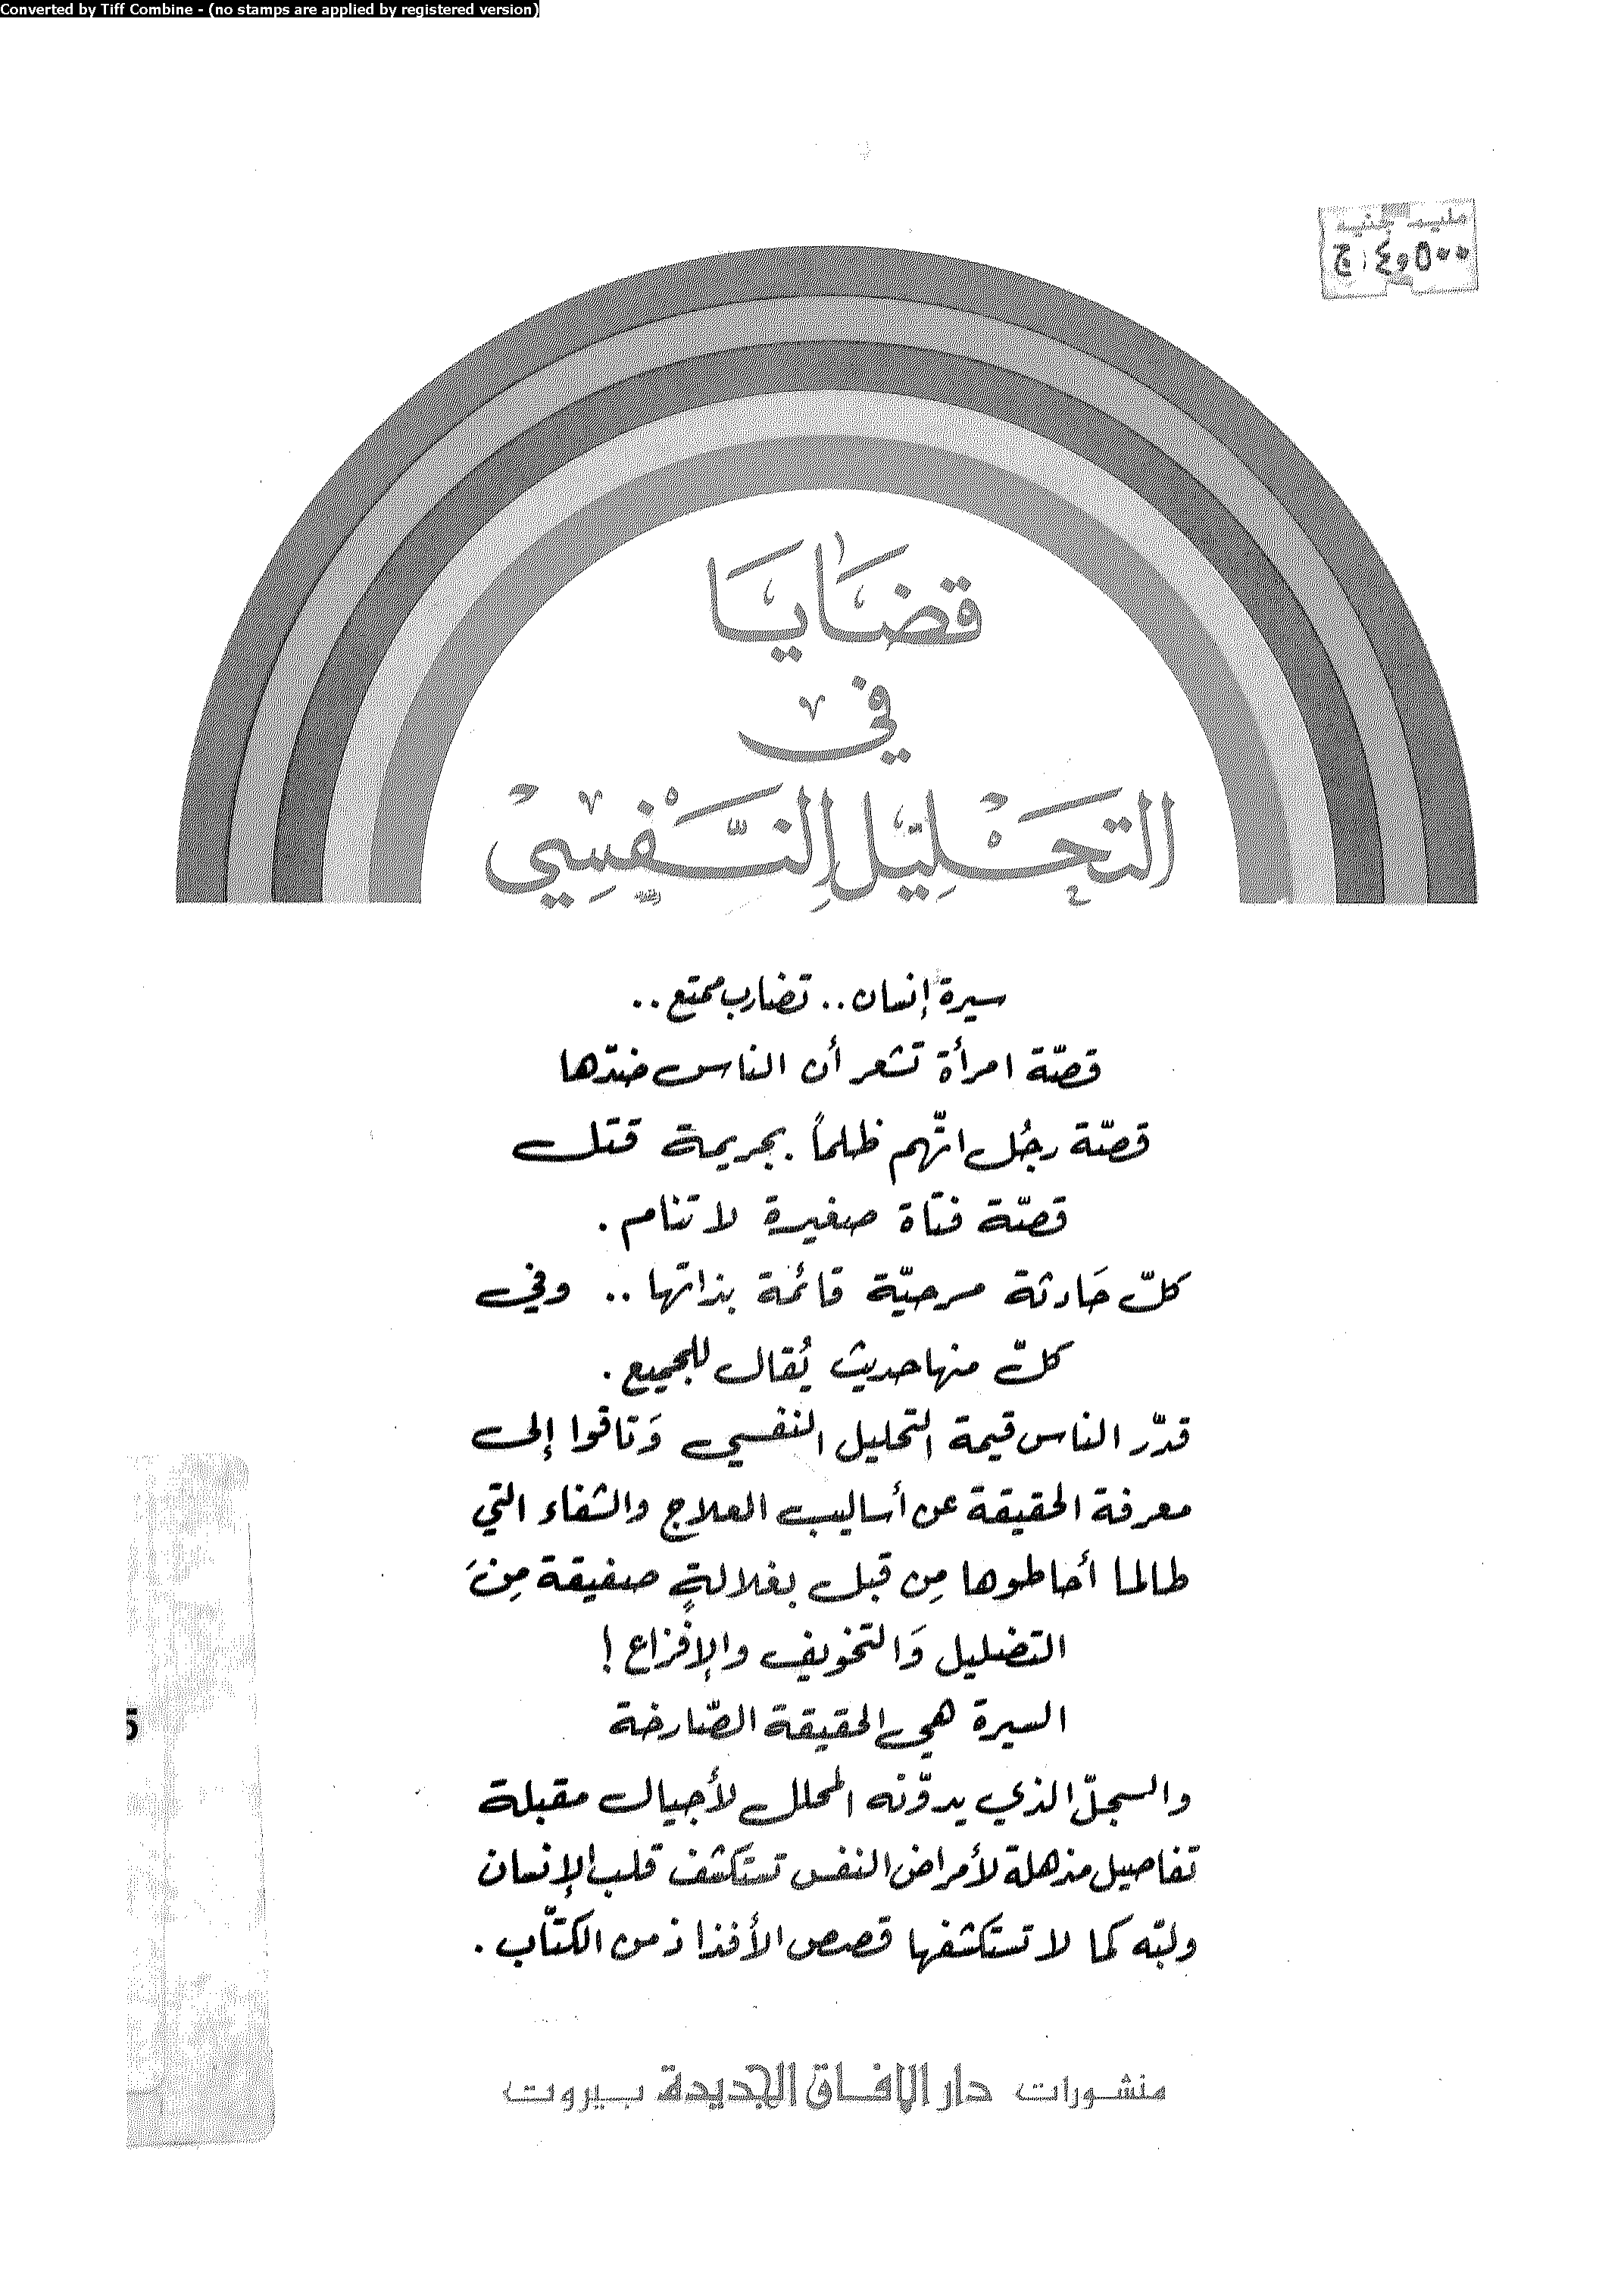 Converted by Tiff Combine - (no stamps are applied by registered version)
مليم جنيه
٤٫٥٠٠ ج
قضايا
في
التحليل النفسي
سيرة إنسان.. تضارب ممتع..
قصّة امرأة تشعر أن الناس ضدّها
قصّة رجُل اتّهم ظلماً بجريمة قتل
قصّة فتاة صغيرة لا تنام.
كلّ حَادثة مسرحيّة قائمة بذاتها.. وفي
كلّ منها حديث يُقال للجميع.
قدّر الناس قيمة التحليل النفسي وَتاقوا إلى
معرفة الحقيقة عن أساليب العلاج والشفاء التي
طالما أحاطوها مِن قبل بغلالةٍ صفيقة مِنَ
التضليل وَالتخويف والإفزاع!
السيرة هي الحقيقة الصّارخة
والسجلّ الذي يدوّنه المحلل لأجيال مقبلة
تفاصيل مذهلة لأمراض النفس تستكشف قلب الإنسان
ولبّه كما لا تستكشفها قصص الأفذاذ من الكتّاب.
5
منشورات دار الافاق الجديدة بيروت